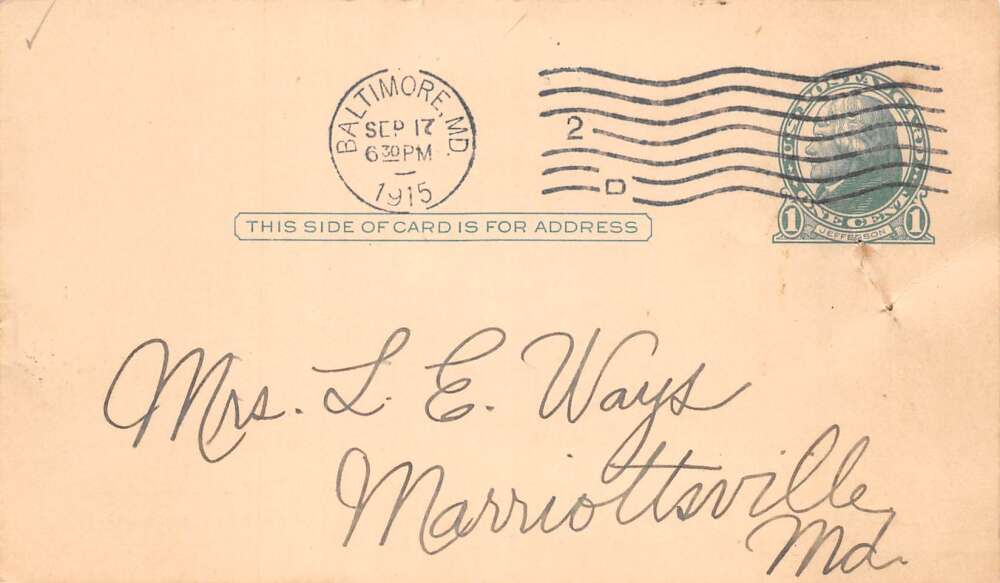 BALTIMORE, MD.
SEP 17
6 30 PM
1915
2
D
POSTAL CARD
ONE CENT
1 1
JEFFERSON
THIS SIDE OF CARD IS FOR ADDRESS
Mrs. L. E. Ways
Marriottsville
Md.